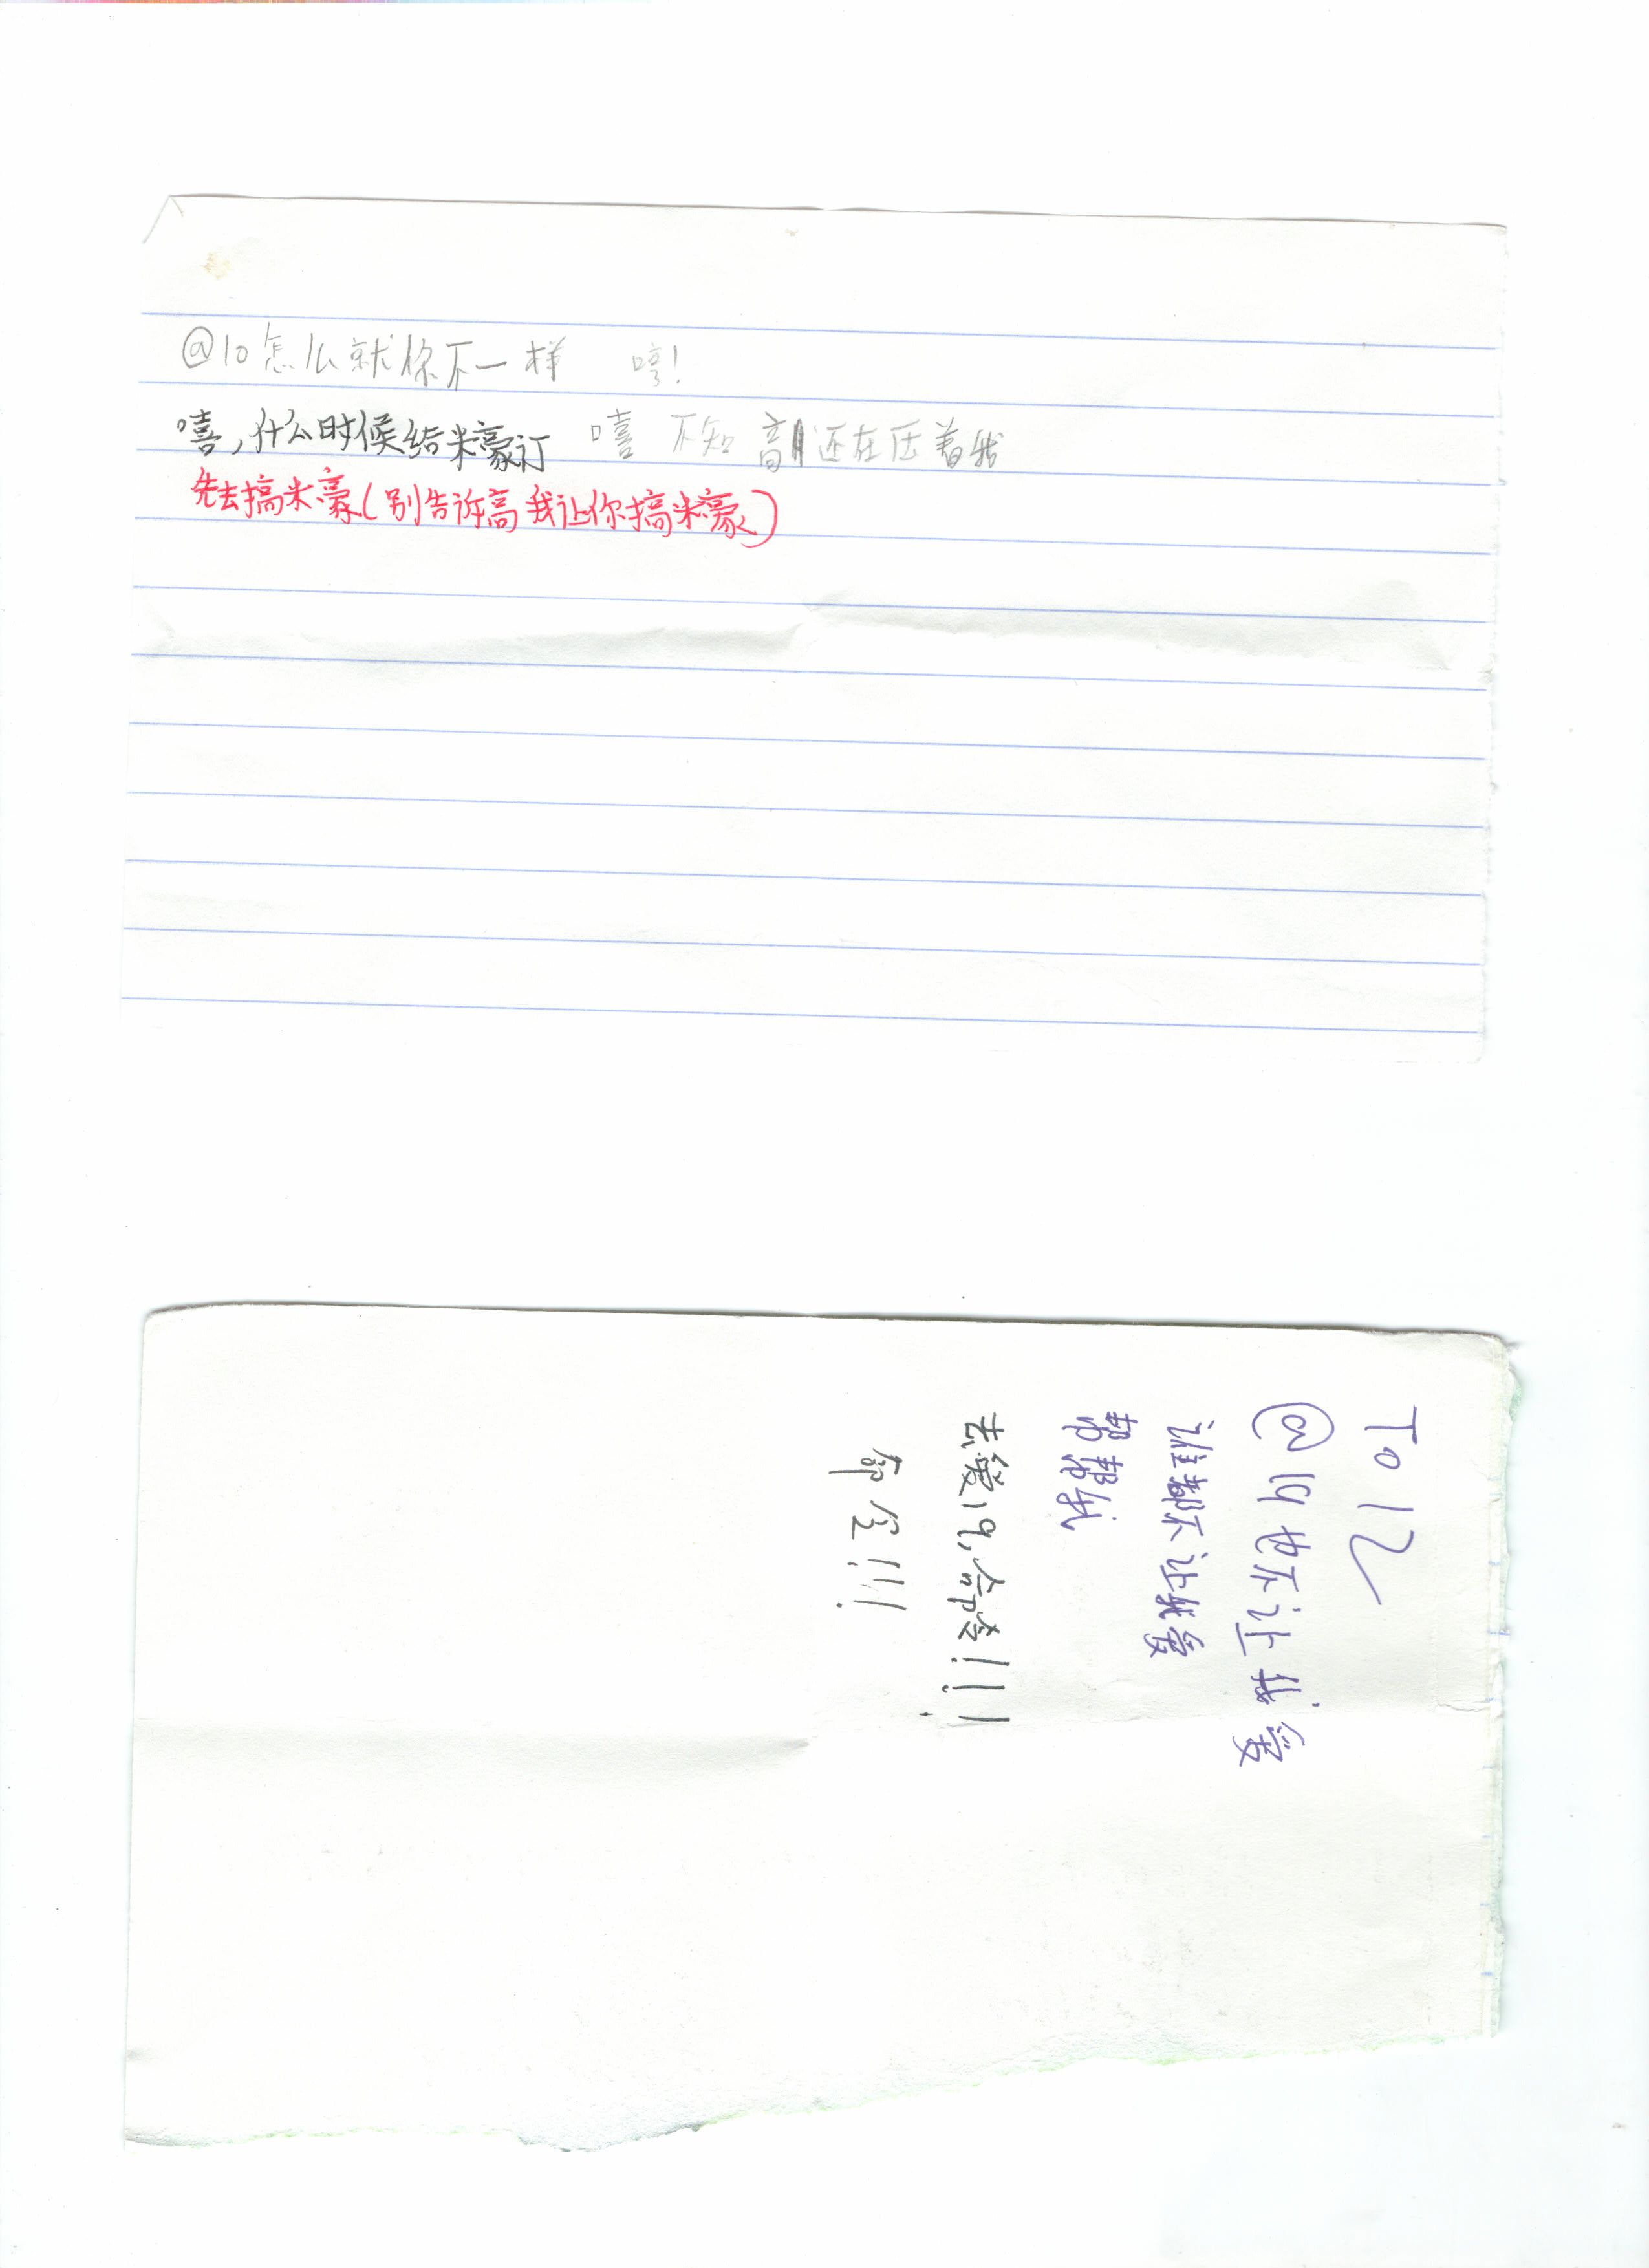 @10怎么就你不一样 哼!
嘻,什么时候给米豪订 嘻 不知 高 还在压着我
先去搞米豪(别告诉高我让你搞米豪)
To 12
@19也不让我爱
谁都不让我爱
帮帮我
去爱19,命令!!!
命令!!!